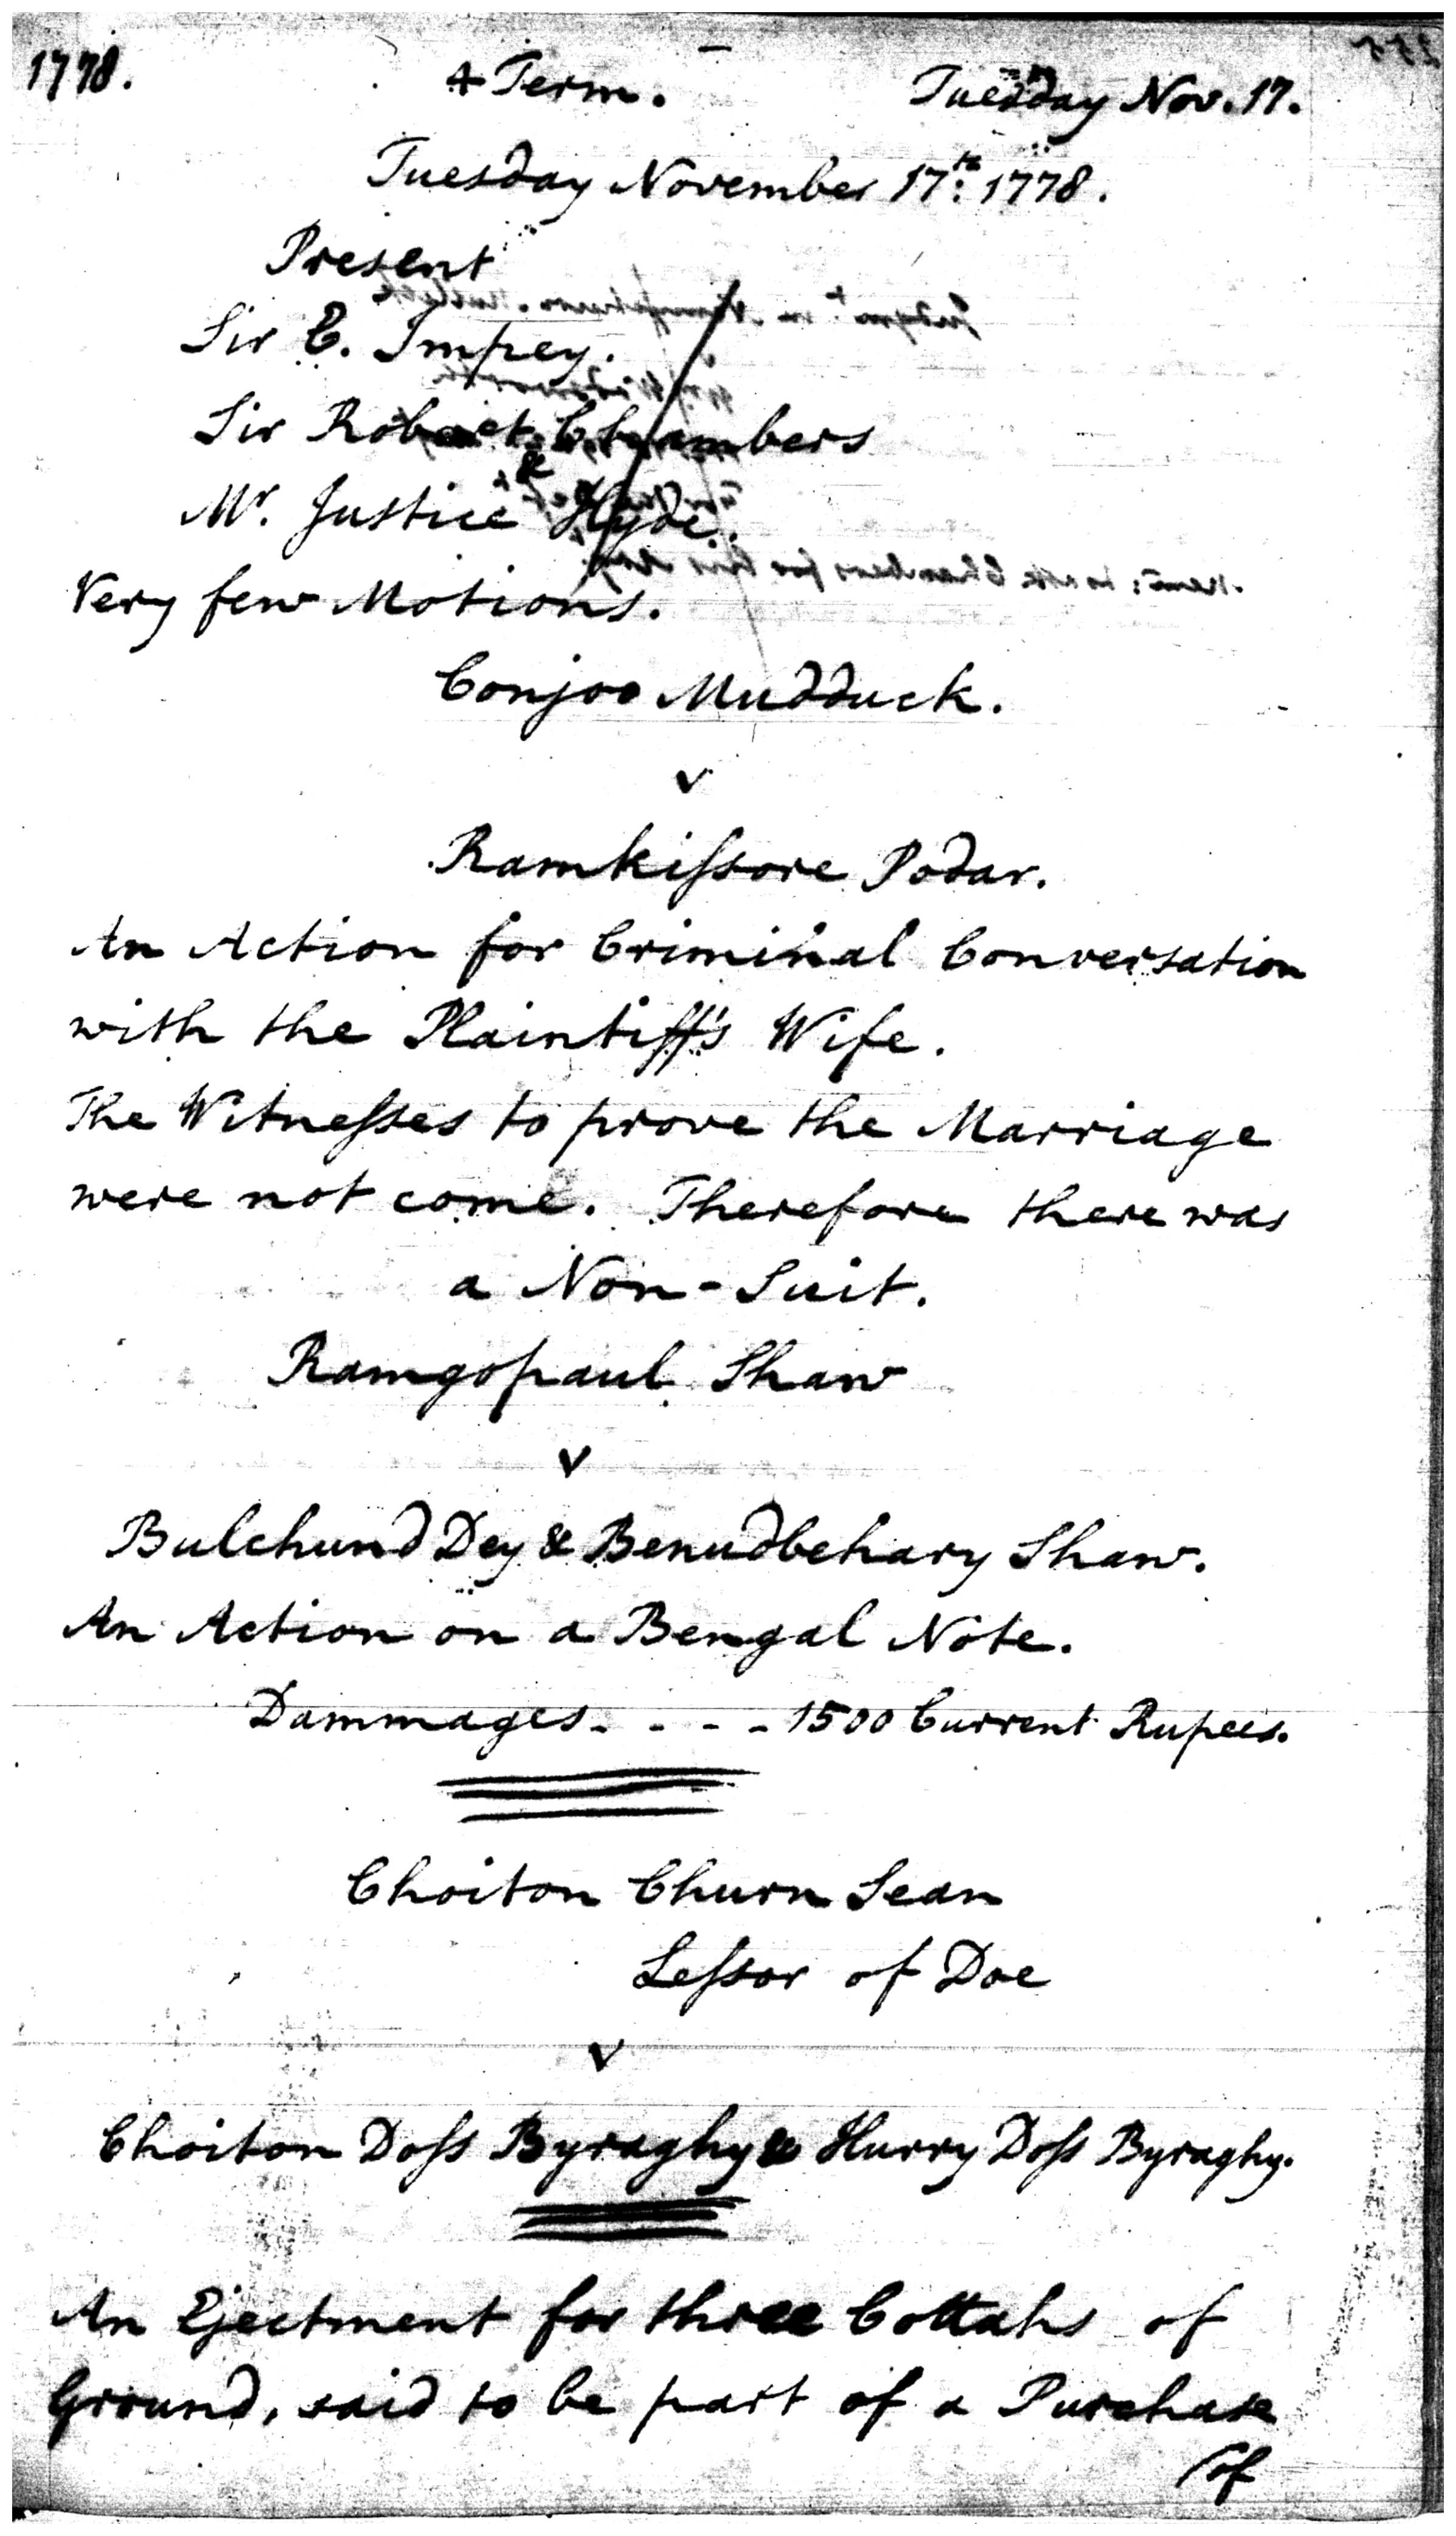 1778. 4 Term. Tuesday Nov. 17.
Tuesday November 17th. 1778.
Present
Sir E. Impey.
Sir Robert Chambers
&
Mr. Justice Hyde.
Very few Motions.
Conjoo Mudduck.
v
Ramkiſsore Podar.
An Action for Criminal Conversation
with the Plaintiff's Wife.
The Witneſses to prove the Marriage
were not come. Therefore there was
a Non-Suit.
Ramgopaul Shaw
v
Bulchund Dey & Benudbehary Shaw.
An Action on a Bengal Note.
Dammages - - - - 1500 Current Rupees.
Choiton Churn Sean
Leſsor of Doe
v
Choiton Doſs Byraghy & Hurry Doſs Byraghy.
An Ejectment for three Cottahs of
Ground, said to be part of a Purchase
/of